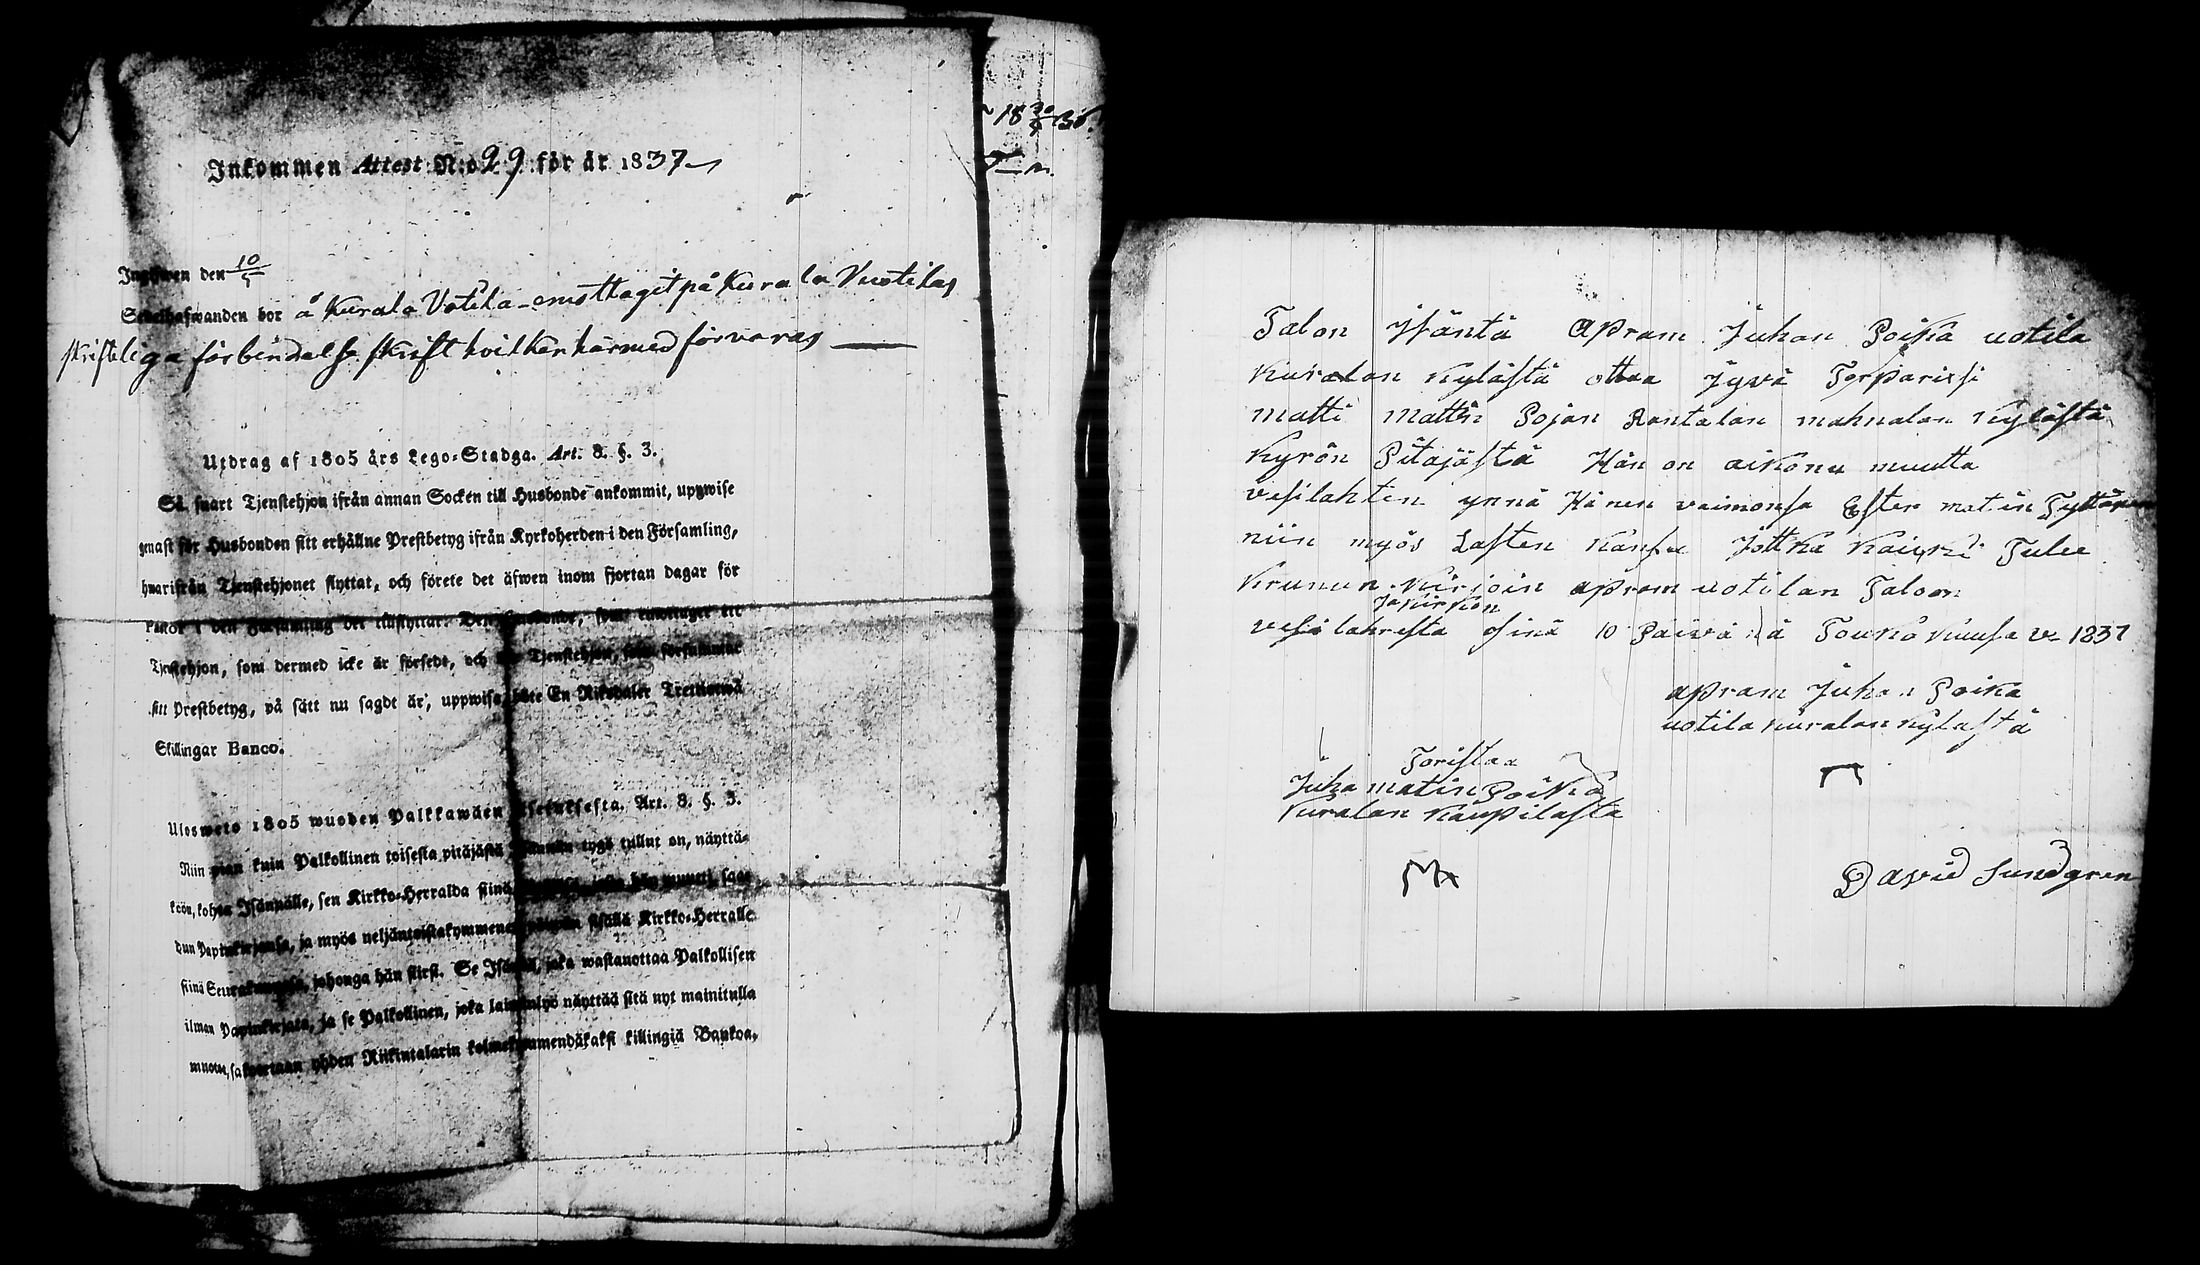 Inkommen Attest N:o 29 för år 1837
Ingifwen den 10/5
Sedelhafwanden bor å Kurala Votila emottagit på Kurala Vuotilas
skrifteliga förbindelse skrift hvilken härmed förvaras
Utdrag af 1805 års Lego-Stadga. Art. 8. §. 3.
Så snart Tjenstehjon ifrån annan Socken till Husbonde ankommit, uppwise
genast för Husbonden sitt erhållne Prestbetyg ifrån Kyrkoherden i den Församling,
hwarifrån Tjenstehjonet flyttat, och förete det äfwen inom fjorton dagar för
i den Församling det tillflyttat. Den som emottager ett
Tjenstehjon, som dermed icke är försedt, och Tjenstehjon, som försummar
sitt Prestbetyg, på sätt nu sagdt är, uppwisa, böte En Riksdaler Trettiotwå
Skillingar Banco.
Ulosweto 1805 wuoden Palkkawäen Asetuksesta. Art. 8. §. 3.
Niin pian kuin Palkollinen toisesta pitäjästä tygö tullut on, näyttä-
köön, kohta Isännälle, sen Kirkko-Herralda siinä saa-
dun Papinkirjansa, ja myös neljäntoistakymmenen sisällä Kirkko-Herralle
siinä Seurakunnassa, johonga hän siirsi. Se Isäntä, joka wastanottaa Palkollisen
ilman Papinkirjata, ja se Palkollinen, joka laiminlyö näyttää sitä nyt mainitulla
muotoa, sakoitetaan yhden Riikintalarin kolmekymmendäkaksi killingiä Bankoa.
18 30/9 36.
Talon Isäntä Apram Juhan Poika uotila
Kuralan Kylästä ottaa Jyvä Torparixsi
matti mattin Pojan Rantalan mahnalan Kylästä
Kyrön Pitäjästä Hän on aikonu muutta
vesilahten ynnä Hänen vaimonsa Ester matin Tyttären
niin myös Lasten Kansa Jotka Kaicki Tulee
Krunun Kirjoin apram uotilan Taloon
ja Kirkon
vesilahresta sinä 10 Päivänä Touko Kuusa v. 1837
apram Juhan Poika
uotila Kuralan Kylästä
Toristaa
Juha matin Poika
Kuralan Kaupilasta
David Sundgren